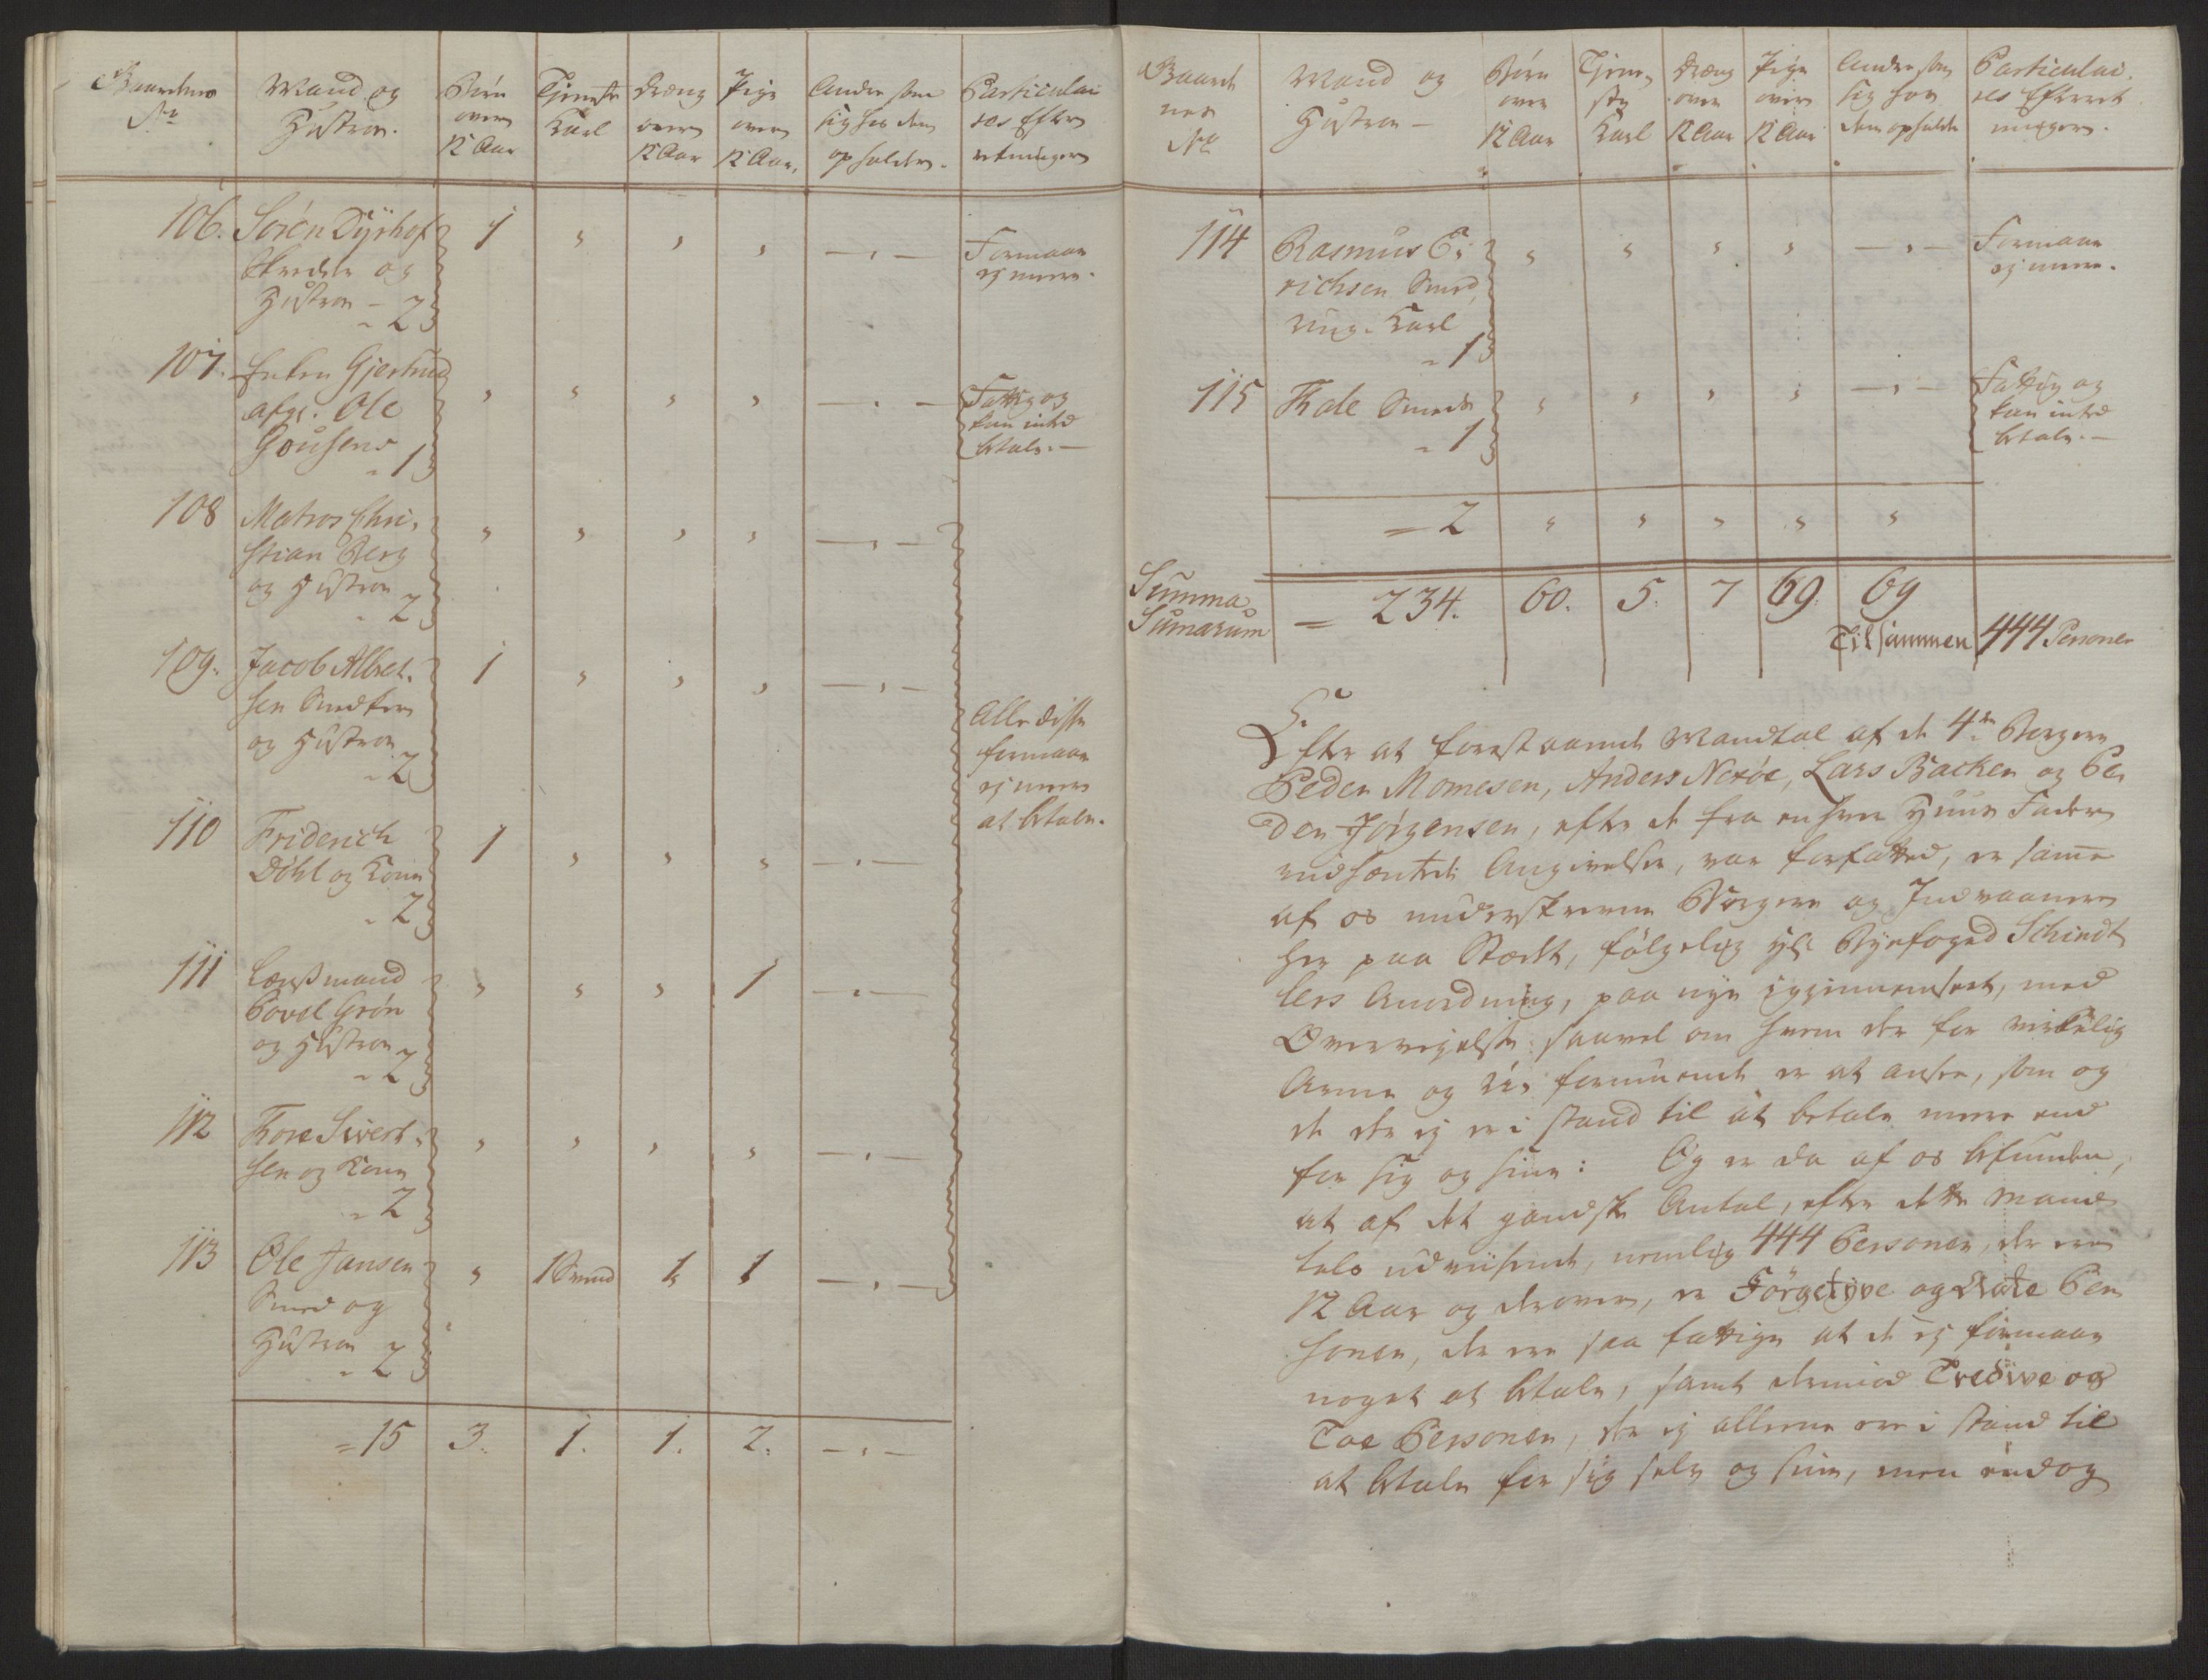 Gaardens No
Mand og Hustroe.
Børn over 12 Aar
Tjeneste Karl
Dreng over 12 Aar
Pige over 12 Aar.
Andre som sig hos dem opholder.
Particulaires Efterretninger
106. Sorén Dyrhof
Skredder og
Hustroe - 2
1 " " " — " —
Formaar
ej mere.
107. Enken Gjertrud
afg: Ole
Goushens
" 1
" " " " — " —
Fattig og
kan intet
betale. —
108 Matros Chri-
stian Berg
og Hustroe
" 2
" " " " — " —
109. Jacob Albret-
sen Snedker
og Hustroe
" 2
1 " " " — " —
Alle disse
formaar
ej meere
at betale.
110 Friderich
Döhl og Kone
" 2
1 " " " — " —
111 Lænsmand
Povel Grön
og Hustroe
" 2
" " " 1 — " —
112 Tore Sivert-
sen og Kone
" 2
" " " " — " —
113 Ole Jansen
Smed og
Hustroe
" 2
" 1 Svend 1 1 — " —
= 15 3. 1. 1. 2. — " —
Gaardenes No
Mand og Hustroe —
Børn over 12 Aar
Tjeneste Karl
Dreng over 12 Aar
Pige over 12 Aar
Andre som sig hos dem opholde
Particulaires Efterretninger.
114 Rasmus E-
richsen Smed,
ung Karl
" 1
" " " " — " —
Formaar
ej mere.
115 Kale Smeds
" 1
" " " " — " —
Fattig og
kan intet
betale. —
= 2 " " " " "
Summa
Sumarum = 234. 60. 5. 7 69. 69
Tilsammen 444 Personer
Efter at forestaaende Mandtal af de 4re Borgere
Peder Momesen, Anders Nexöe, Lars Backen og Pe-
der Jörgensen, efter de fra enhver Huus Fader
indhæntede Angivelser, var forfatted, er samme
af os underskrevne Borgere og Indvaanere
her paa Stædet, følgelig Hr Byefoged Schindt
lers Anordning, paa nye igjennemseet, med
Overvejelse saavel om hvem der for virkelig
Arme og uformuende er at ansee, som og
de der ej er i stand til at betale mere end
for sig og sine: Og er da af os befunden,
at af det gandske Antal, efter dette Mand-
tals udvisende, nemlig 444 Personer, der ere
12 Aar og derover, er Förgetyve og Otte Per-
soner, der ere saa fattige at de ej formaar
noget at betale, samt derimod Tredive og
Toe Personer, der ej alleene ere i stand til
at betale for sig selv og sine, men endog